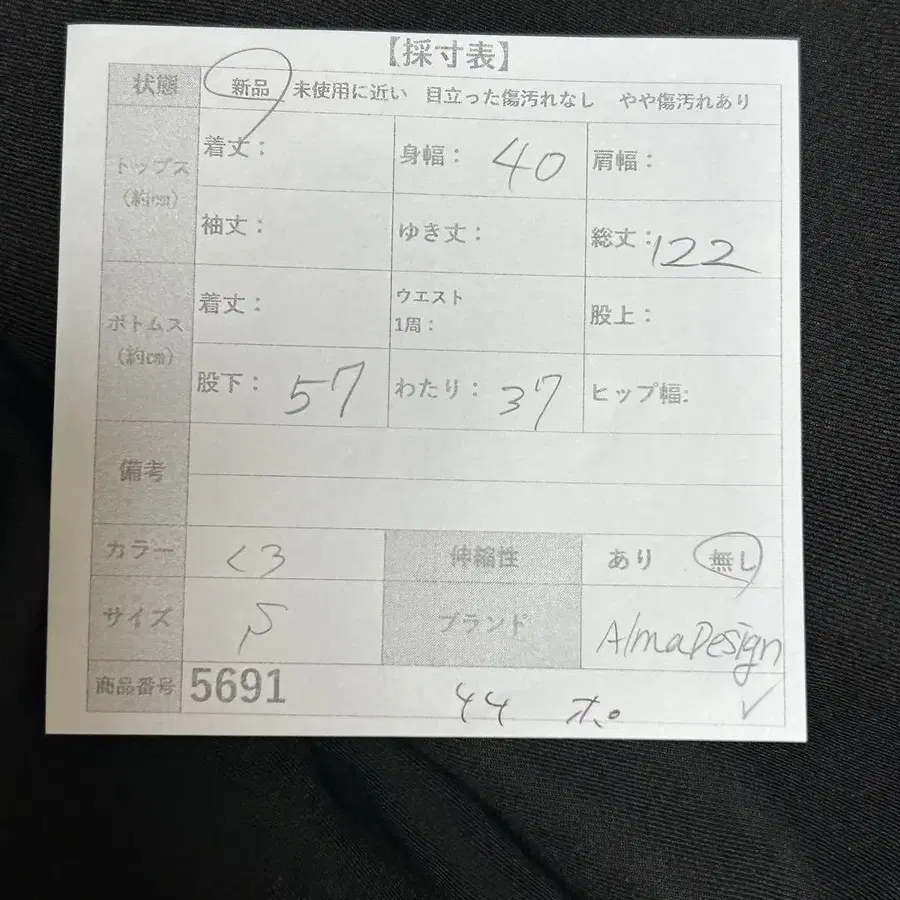 【採寸表】
状態 新品 未使用に近い 目立った傷汚れなし やや傷汚れあり
トップス (約cm) 着丈： 身幅： 40 肩幅：
袖丈： ゆき丈： 総丈： 122
ボトムス (約cm) 着丈： ウエスト 1周： 股上：
股下： 57 わたり： 37 ヒップ幅:
備考
カラー くろ 伸縮性 あり 無し
サイズ S ブランド AlmaDesign
商品番号 5691 44 ポ